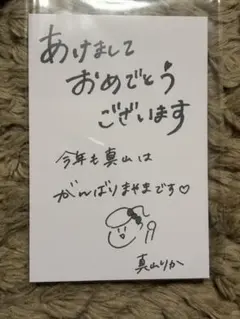 あけまして
おめでとう
ございます
今年も真山は
がんばりまやまです♡
真山りか